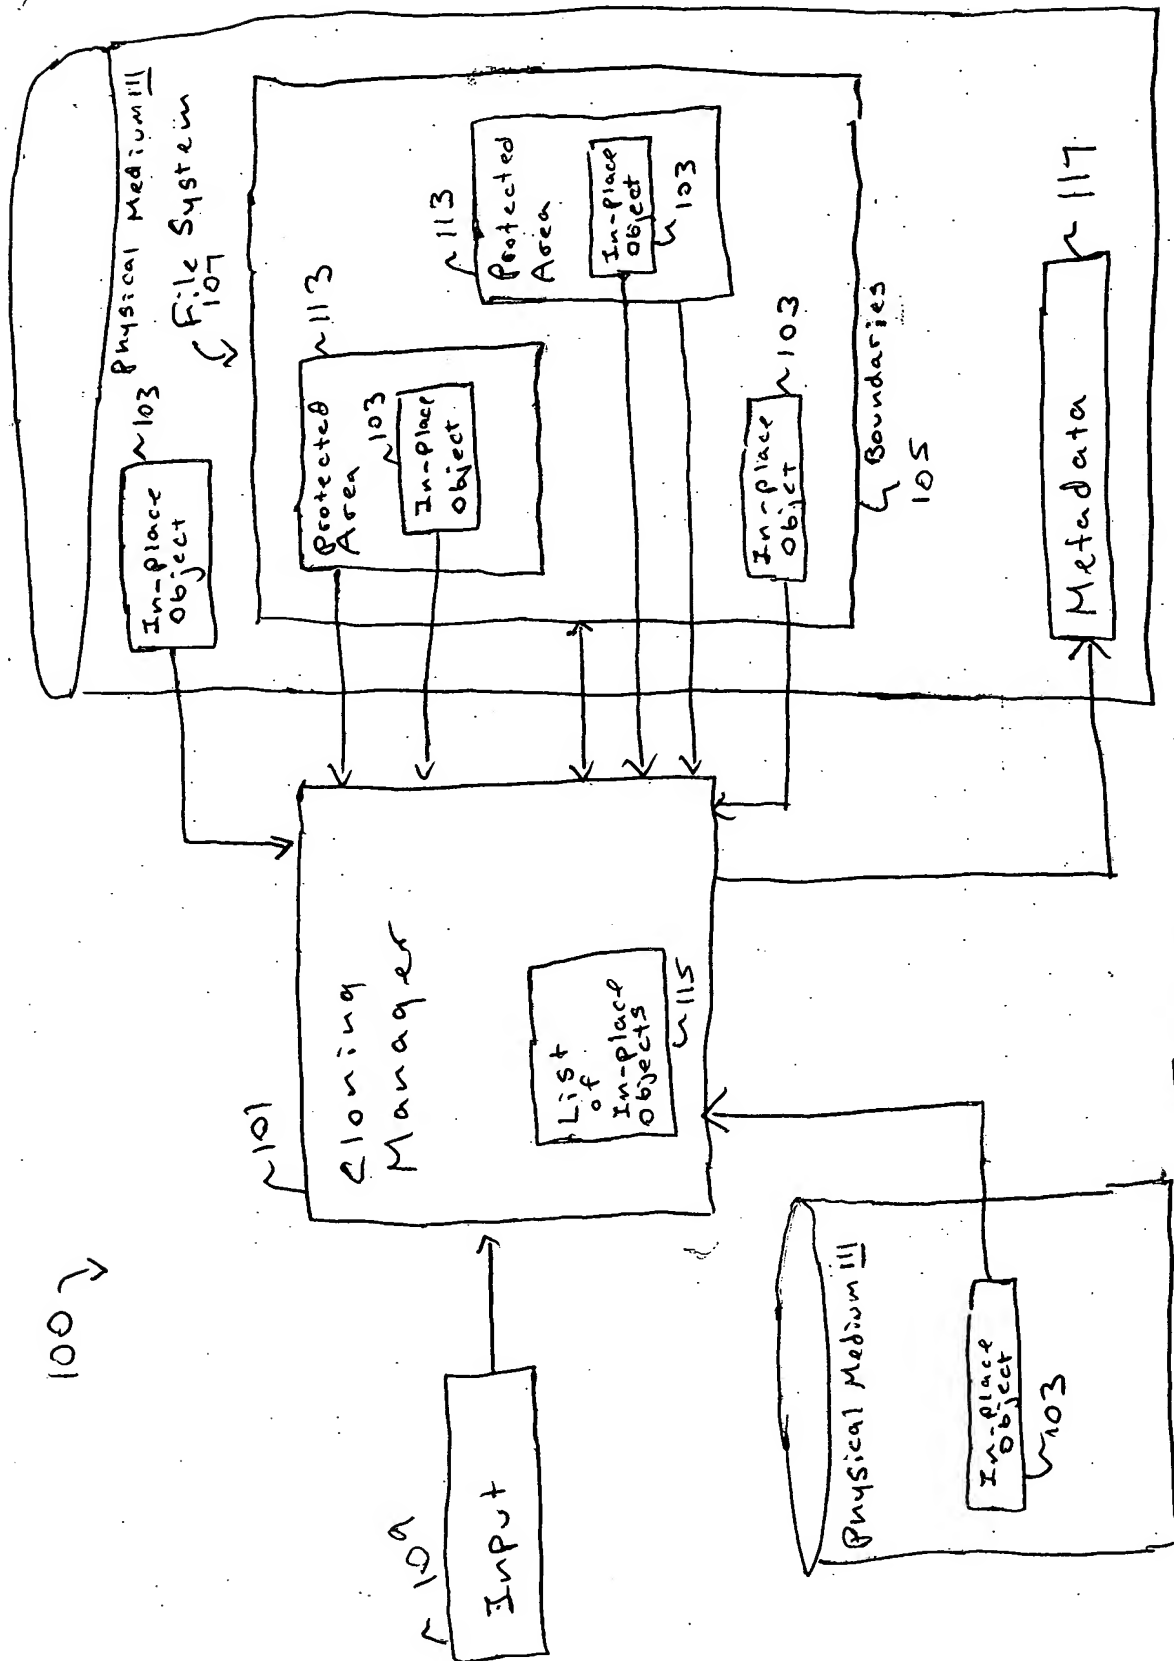 100
109
Input
101
Cloning
Manager
List
of
In-Place
Objects
115
Physical Medium 111
In-Place
Object
103
Physical Medium 111
File System
107
In-Place
Object
103
113
Protected
Area
103
In-Place
Object
113
Protected
Area
In-Place
Object
103
In-Place
Object
103
Boundaries
105
Metadata
117